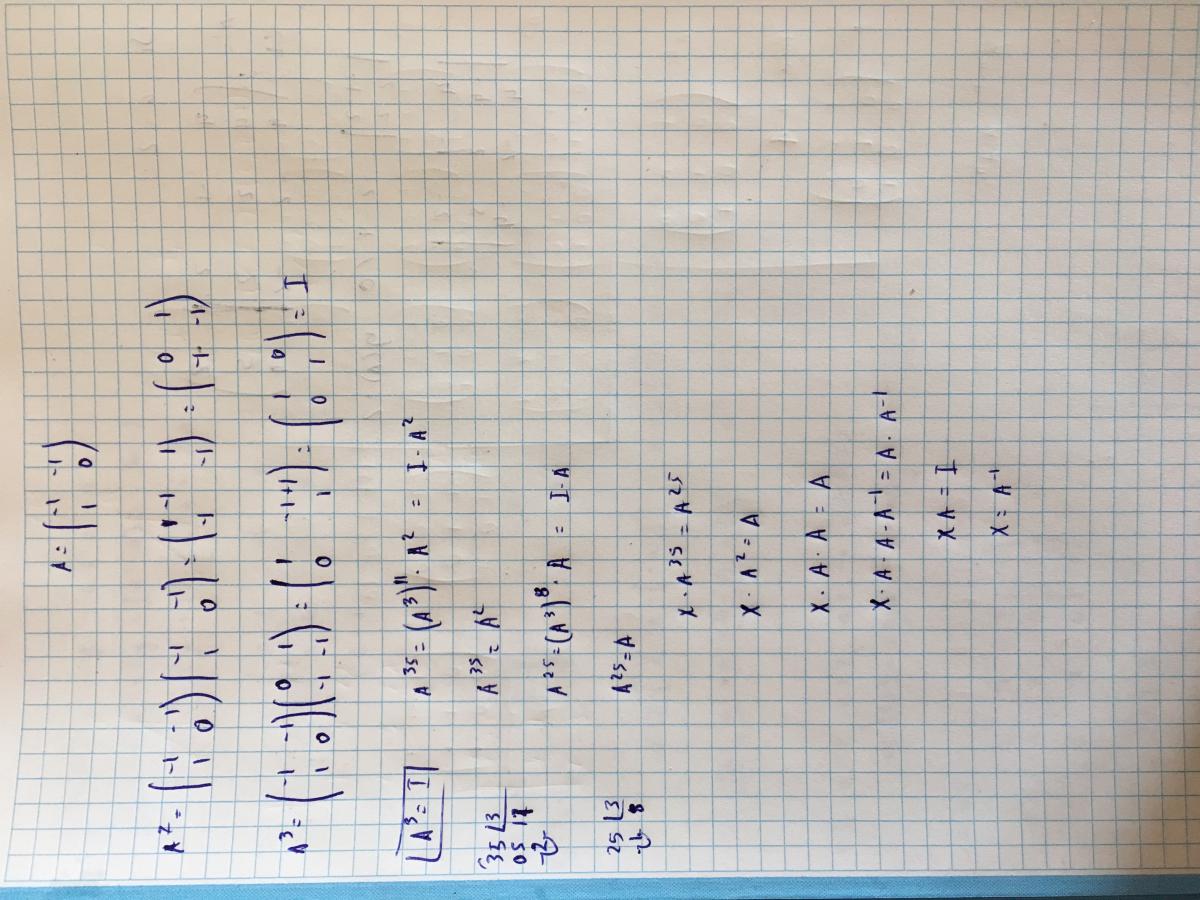 A = ( -1 -1 ; 1 0 )
A² = ( -1 -1 ; 1 0 ) ( -1 -1 ; 1 0 ) = ( 1-1 1 ; -1 -1 ) = ( 0 1 ; -1 -1 )
A³ = ( -1 -1 ; 1 0 ) ( 0 1 ; -1 -1 ) = ( 1 -1+1 ; 0 1 ) = ( 1 0 ; 0 1 ) = I
A³ = I
A³⁵ = (A³)¹¹ · A² = I · A²
35 | 3
05 11
2
A³⁵ = A²
A²⁵ = (A³)⁸ · A = I · A
25 | 3
1 8
A²⁵ = A
X · A³⁵ = A²⁵
X · A² = A
X · A · A = A
X · A · A · A⁻¹ = A · A⁻¹
X A = I
X = A⁻¹